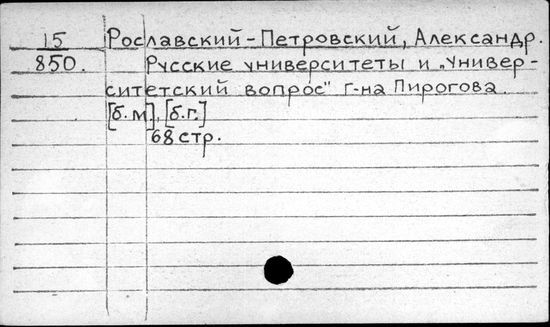 15 Рославский-Петровский, Александр.
850. Русские университеты и „Универ-
ситетский вопрос" г-на Пирогова.
[б.м], [б.г.]
68 стр.